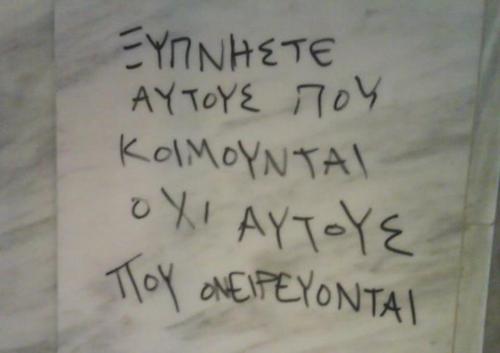 ΞΥΠΝΗΣΤΕ
ΑΥΤΟΥΣ ΠΟΥ
ΚΟΙΜΟΥΝΤΑΙ
ΟΧΙ ΑΥΤΟΥΣ
ΠΟΥ ΟΝΕΙΡΕΥΟΝΤΑΙ